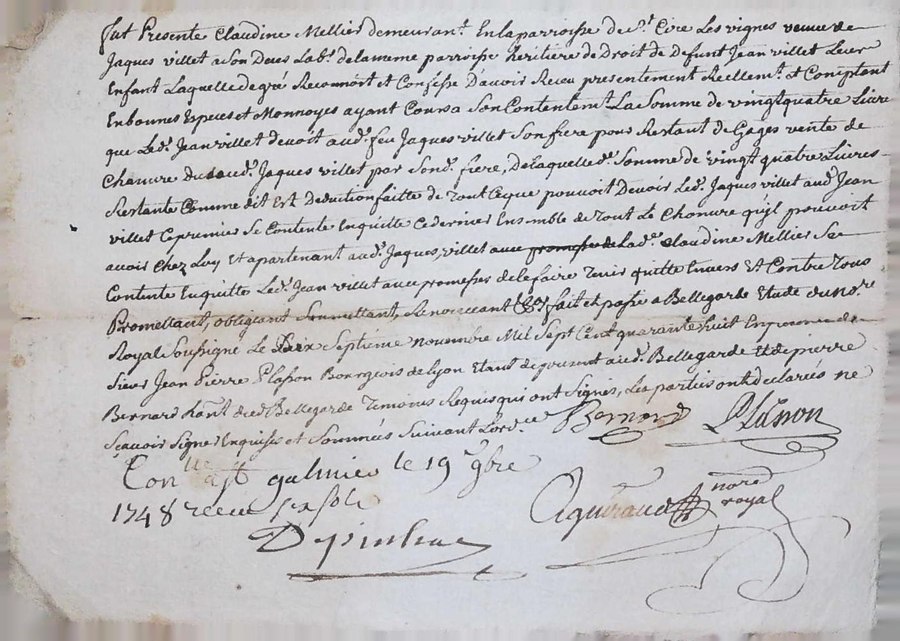 fut Presente Claudine Mellier demeurant. En la parroisse de st. Cire Les vignes veuve de
Jaques villet a son Deces Labr. de la meme parroisse heritiere de Droit de Defunt Jean villet Leur
Enfant Laquelle de gré Reconnoit et Confesse D'avoir Receu presentement Reellemt. et Comptant
En bonnes Especes et Monnoyes ayant Cours a Son Contentemt. La Somme de vingt quatre Livre
que Led. Jean villet devoit aud. feu Jaques villet Son frere pour Restant de Gages vente de
Chanvre Dud. Jaques villet par Sond. frere, De Laquelle d. Somme de vingt quatre Livres
Restante Comme dit Est deduction faitte de Tout Ceque pouvoit Devoir Led. Jaques villet aud. Jean
villet Ce premier Se Contente En quitte Ce dernier Ensemble de Tout Le Chanvre qu'jl pouvoit
avoir Chez Luy Et apartenant aud. Jaques villet Lade. Claudine Mellier Se
Contente En quitte Led. Jean villet avec promesses de le faire Tenir quitte Envers Et Contre Tous
Promettant, obligeant Soumettant, Renonceant &a. fait et passé a Bellegarde Etude du Nore.
Royal Soussigné Le Dix Septieme Novembre Mil Sept Cent quarante huit En presence de
Sieur Jean Pierre Plasson Bourgeois de Lyon Etant de present aud. Bellegarde Et de pierre
Bernard hant. dud. Bellegarde Temoins Requis qui ont Signés, Les parties ont declarées ne
Sçavoir Signer Enquises et Sommées Suivant Lordce.
Bernard Plasson
Con lle a st galmier le 19 9bre
1748 receu six sols
Aguiraud nore royal